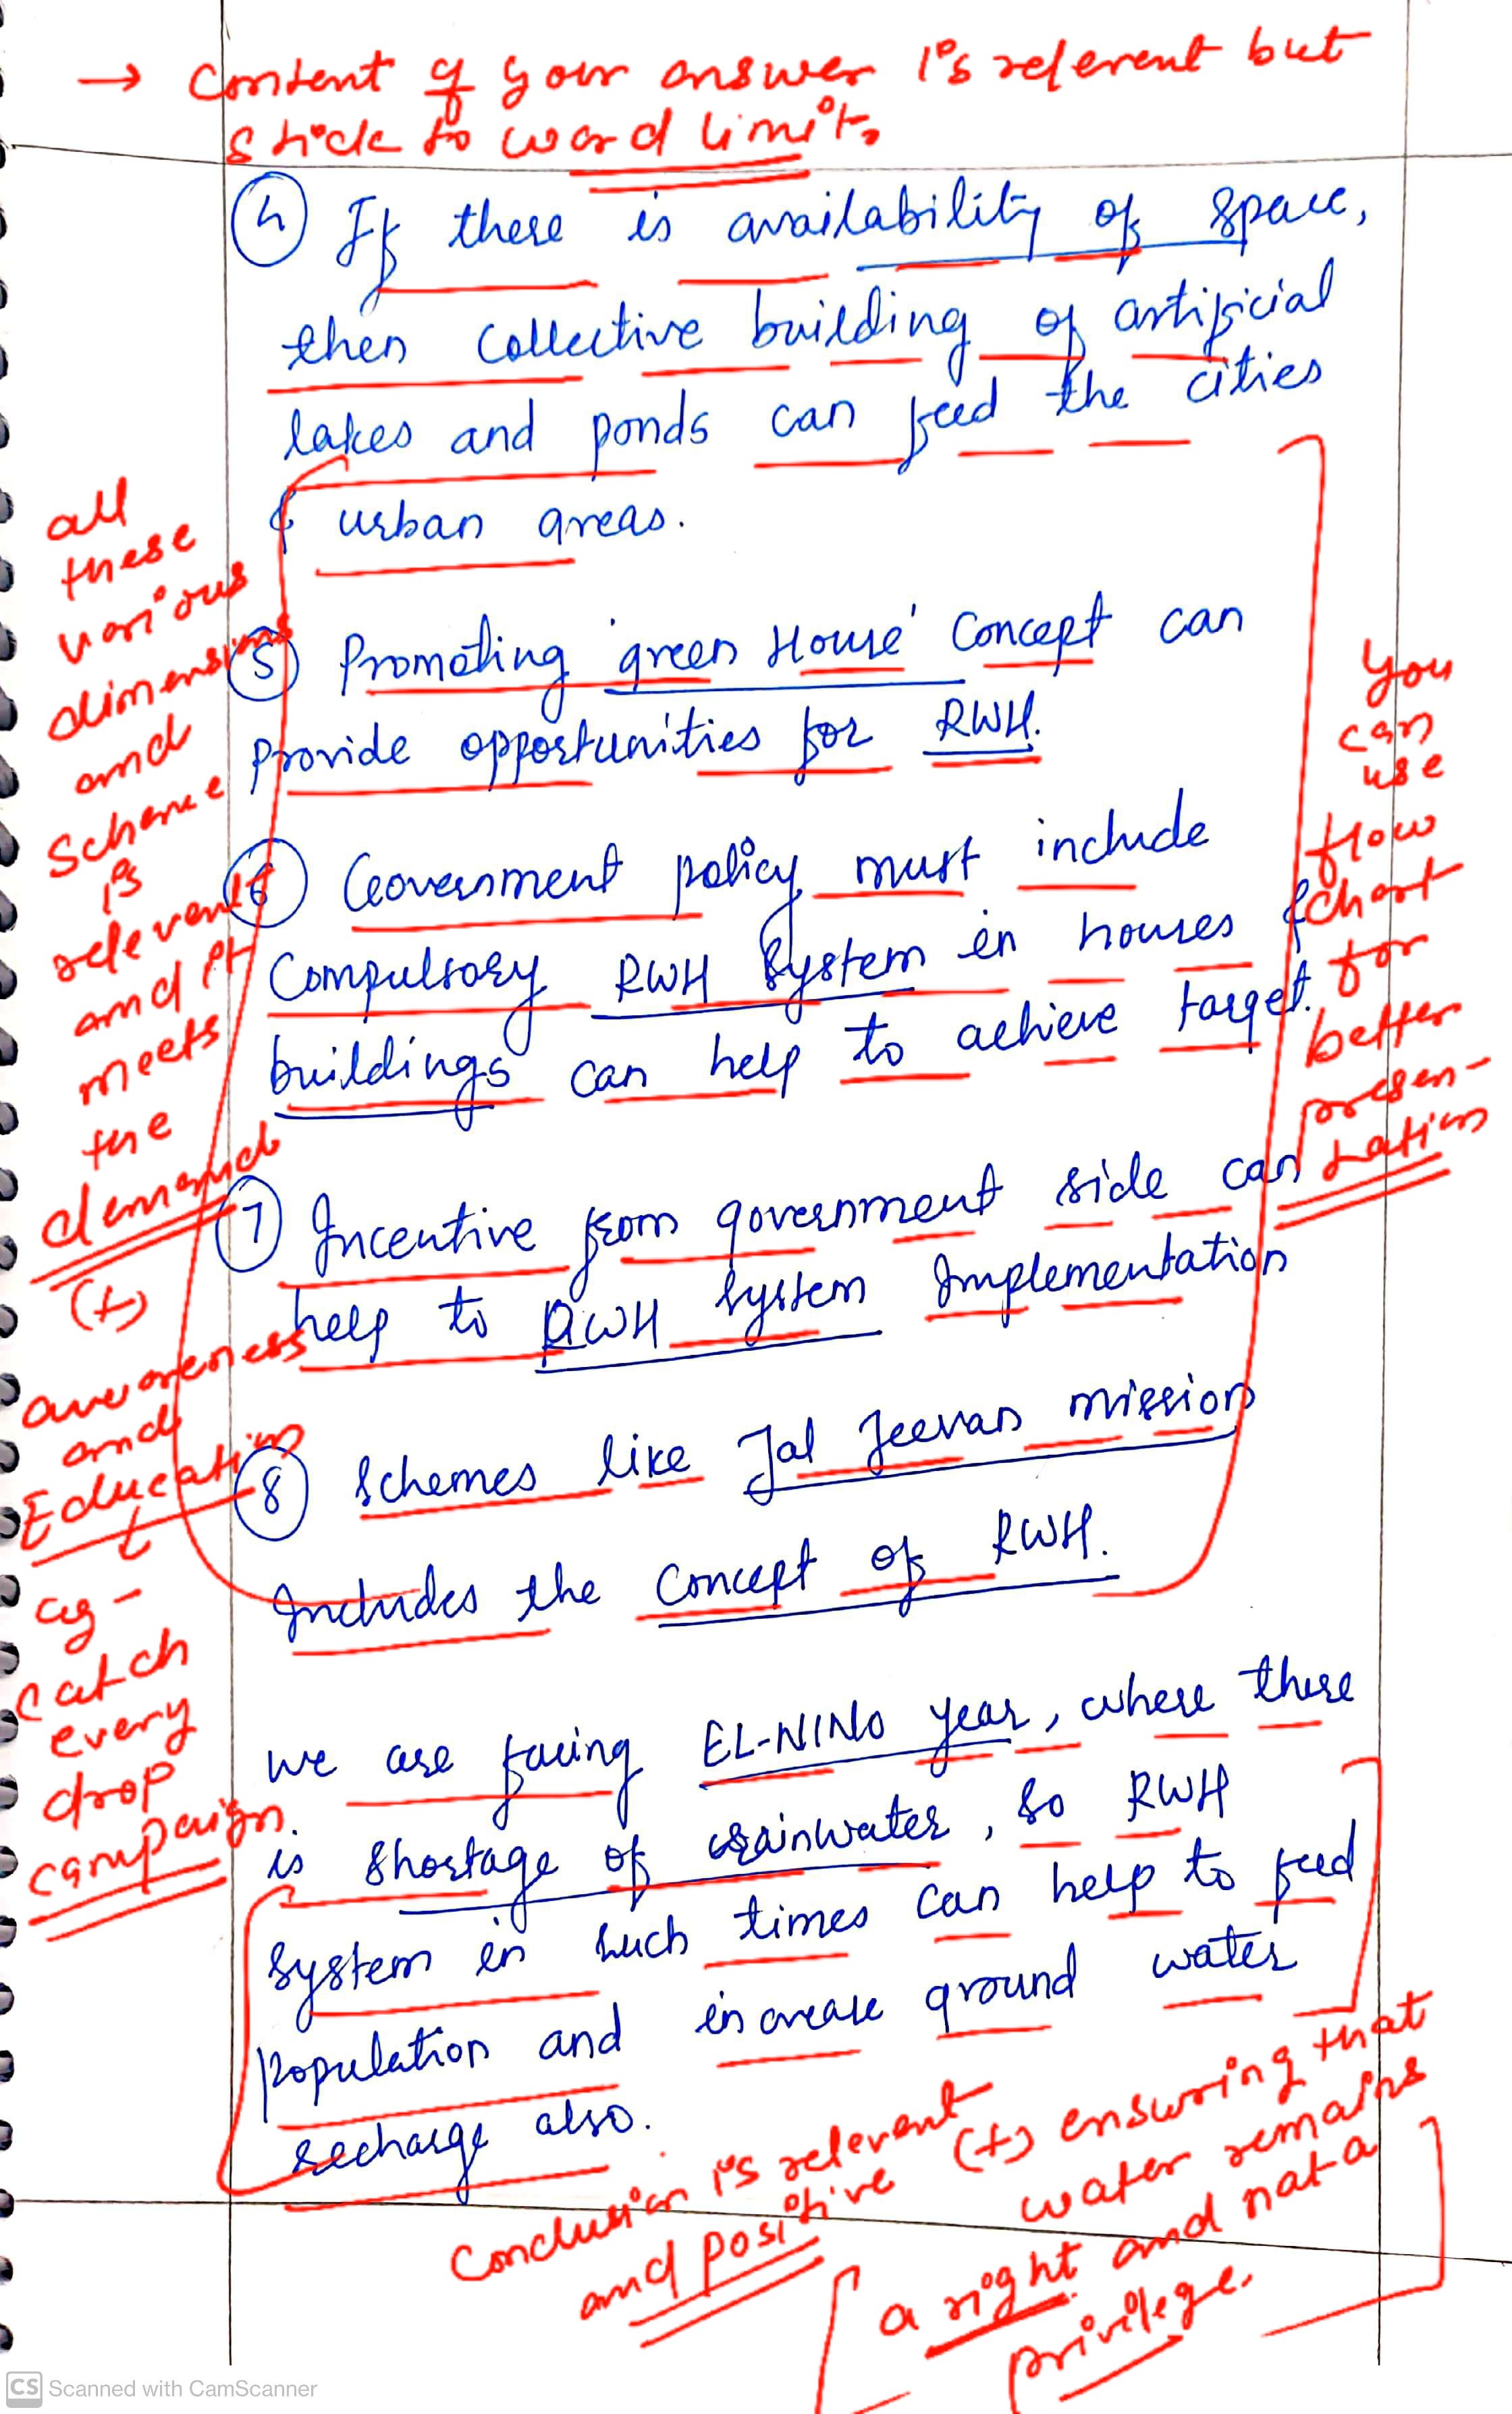 → Content of your answer is relevent but
stick to word limit.
④ If there is availability of space,
then collective building of artificial
lakes and ponds can feed the cities
& urban areas.
⑤ Promoting 'green House' Concept can
provide opportunities for RWH.
⑥ Government policy must include
Compulsory RWH System in houses &
buildings can help to achieve target.
⑦ Incentive from government side can
help to RWH system Implementation
⑧ Schemes like Jal Jeevan mission
Includes the concept of RWH.
we are facing EL-NINO year, where there
is shortage of rainwater, so RWH
system in such times can help to feed
population and increase ground water
recharge also.
all
these
various
dimensions
and
scheme
is
relevent
and it
meets
the
demand
(+)
awareness
and
Education
eg-
catch
every
drop
campaign.
You
can
use
flow
chart
for
better
presen-
tation
Conclusion is relevent
and positive
(+) ensuring that
water remains
a right and not a
privilege.
CS Scanned with CamScanner